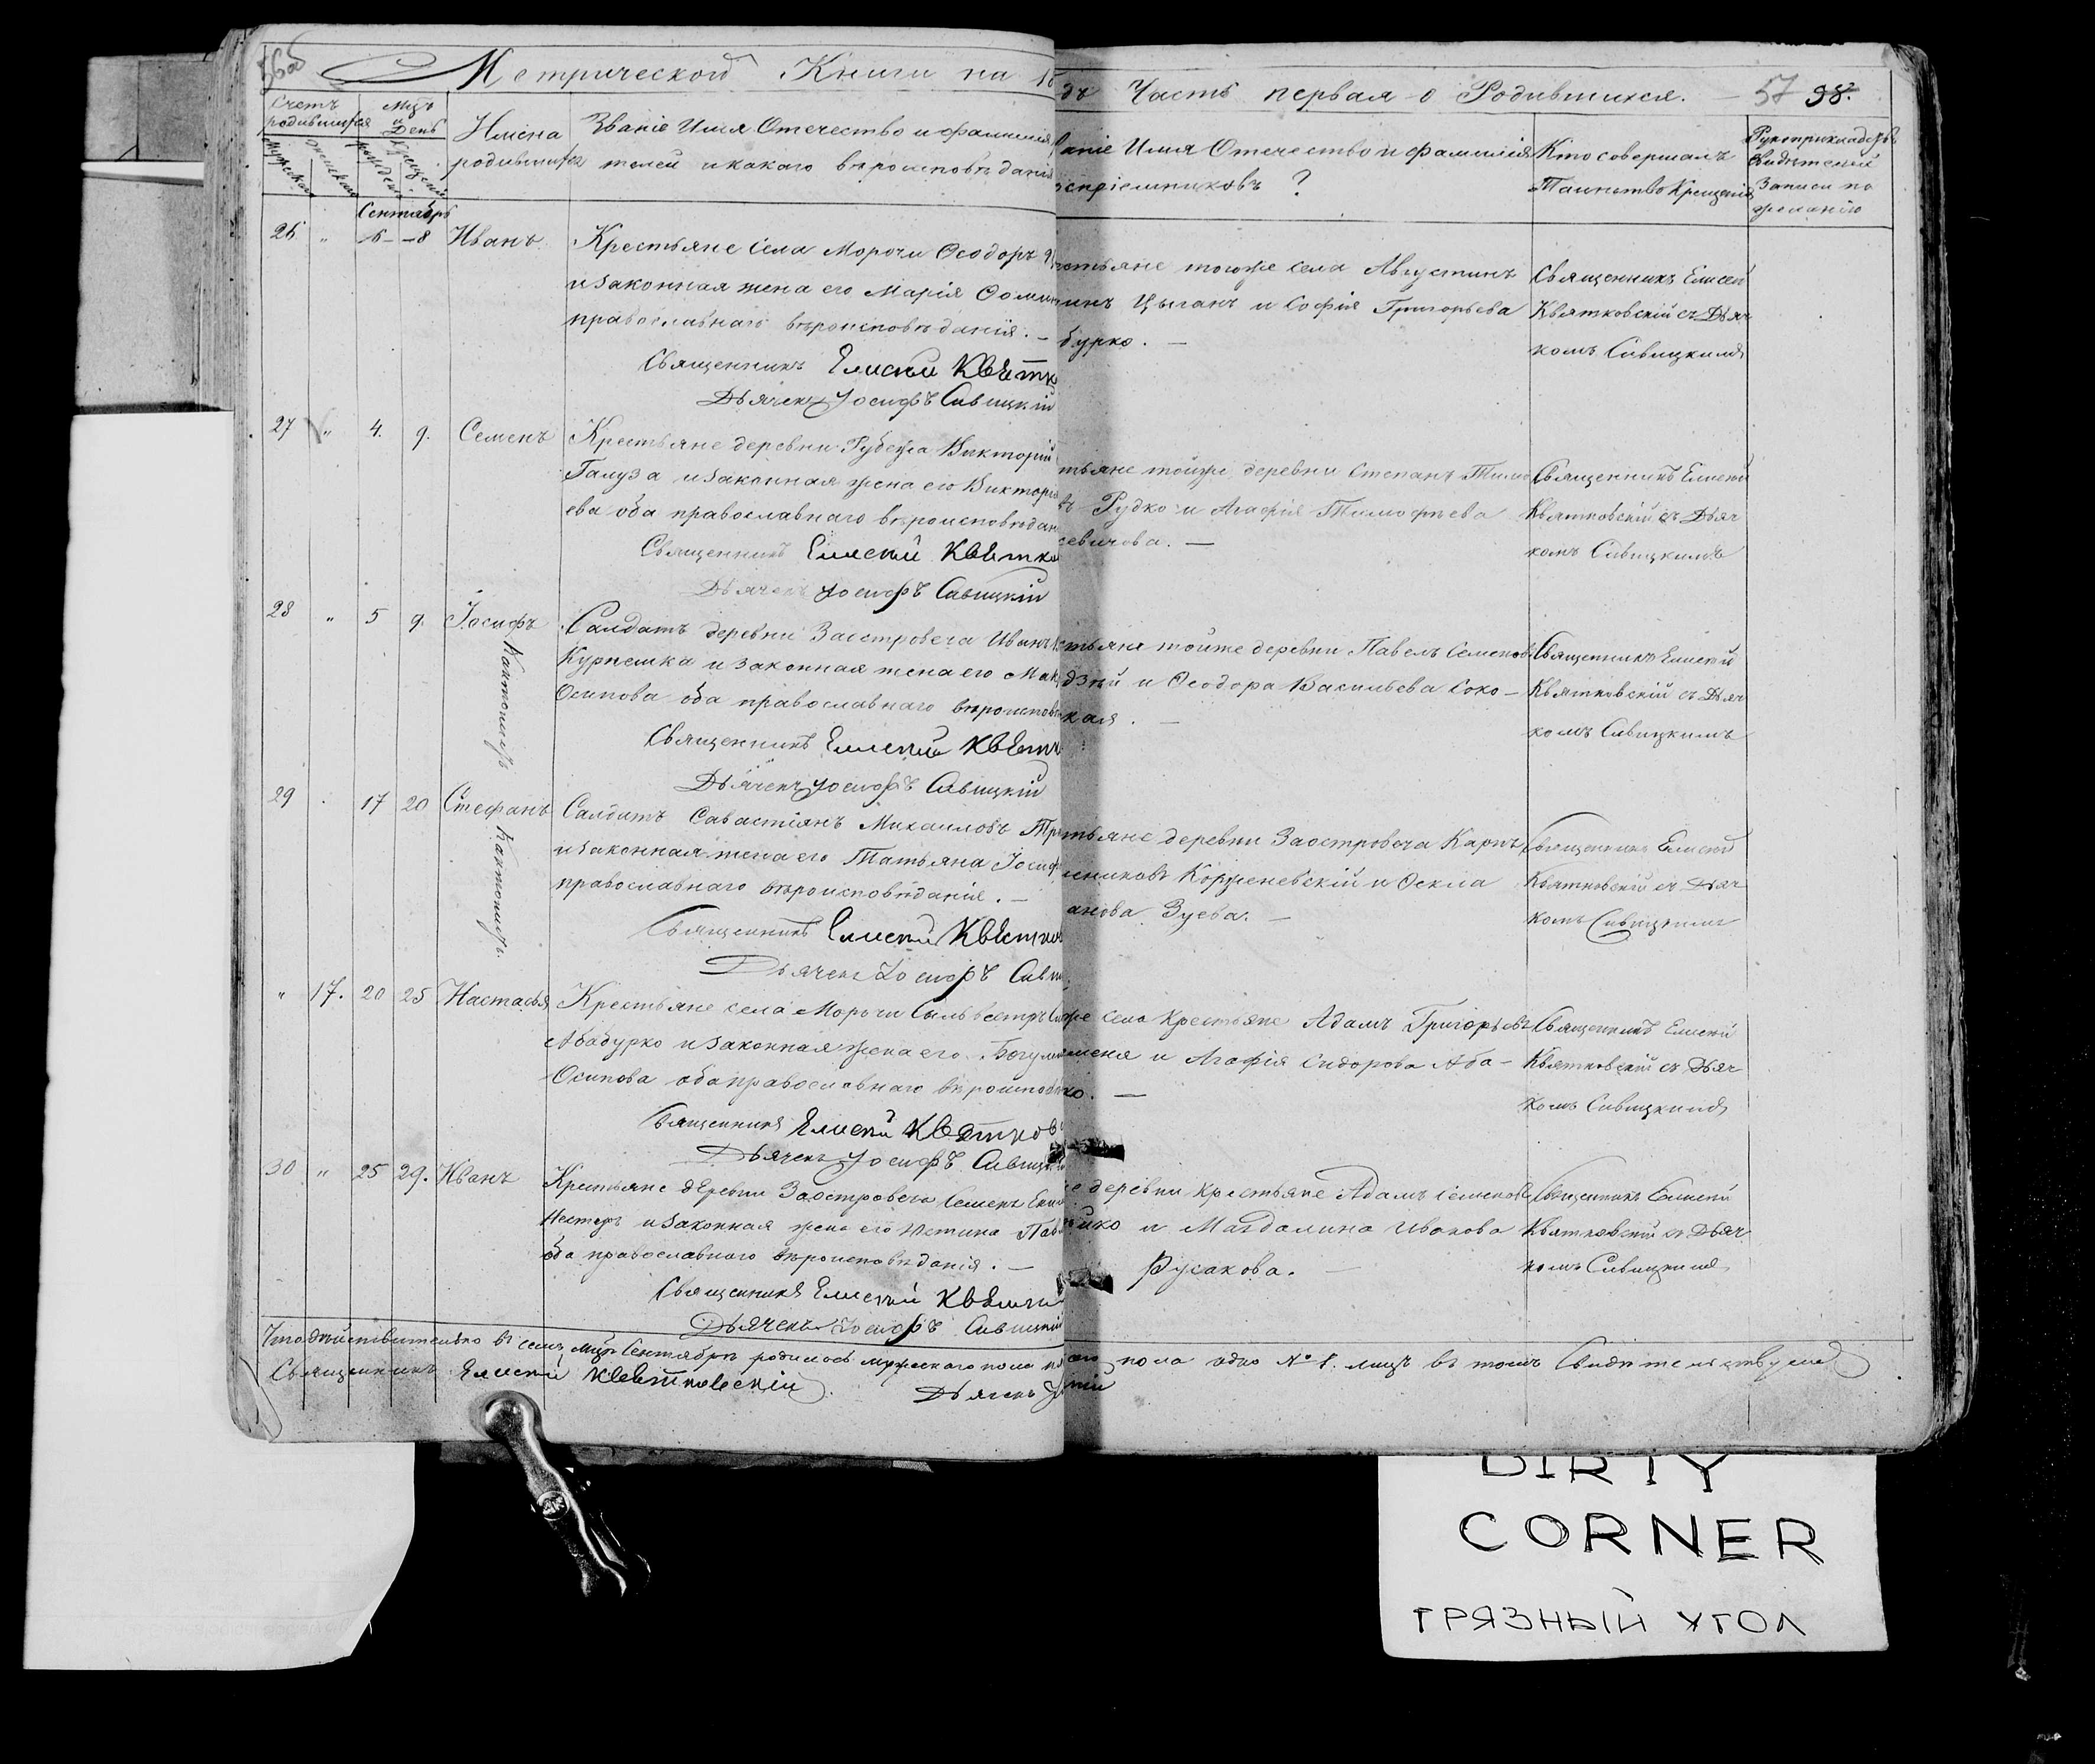 Метрической Книги на 18
дъ Часть первая о Родившихся. 57 98.
Счетъ родившихся
Мужеска
Женскаго
Мцъ и День
рожденія
крещенія
Имена родившихся
Званіе Имя Отечество и фамилія
телей и какого вѣроисповѣданія
аніе Имя Отечество и Фамилія
оспріемниковъ ?
Кто совершалъ
Таинство Крещенія
Рукоприкладство
свидѣтелей
записи по
желанію
Сентябрь
26 " 6 8 Иванъ
Крестьяне села Морочи Ѳеодоръ
и законная жена его Марія Ѳоми
православнаго вѣроисповѣданія. —
Священникъ Елисей Квятк
Дьячекъ Іосифъ Савицкій
стьяне тогоже села Августинъ
инъ Цыганъ и Софія Григорьева
бурко. —
Священникъ Елисей
Квятковскій съ Дьяч
комъ Савицкимъ
27 " 4. 9. Семенъ
Крестьяне деревни Рубежа Викторій
Галуза и законная жена его Виктори
ева оба православнаго вѣроисповѣдан
Священникъ Елисей Квятко
Дьячекъ Іосифъ Савицкій
тьяне тойже деревни Степанъ Тимо
въ Рудко и Агафія Тимофѣева
севичова. —
Священникъ Елисей
Квятковскій съ Дьяч
комъ Савицкимъ
28 " 5 9. Іосифъ
Кантонистъ
Салдатъ деревни Заостровеча Иванъ
Курпешка и законная жена его Мак
Осипова оба православнаго вѣроисповѣ
Священникъ Елисей Квятк
Дьячекъ Іосифъ Савицкій
стьяня тойже деревни Павелъ Семенов
дзѣй и Ѳеодора Васильева Соко —
кая. —
Священникъ Елисей
Квятковскій съ Дьяч
комъ Савицкимъ
29 . 17 20 Стефанъ
Кантонистъ.
Салдатъ Савастіянъ Михаиловъ Тр
и законная жена его Татьяна Іосиф
православнаго вѣроисповѣданія. —
Священникъ Елисей Квятков
Дьячекъ Іосифъ Сави
тьяне деревни Заостровеча Карпъ
ениковъ Корженевскій и Ѳекла
анова Зуева. —
Священникъ Елисей
Квятковскій съ Дьяч
комъ Савицкимъ
" 17. 20 25 Настасья
Крестьяне села Морочи Сильвестръ
Абабурко и законная жена его Богум
Осипова оба православнаго вѣроисповѣ
Священникъ Елисей Квятков
Дьячекъ Іосифъ Савицк
оже села Крестьяне Адамъ Григорьевъ
меня и Агафія Сидорова Аба —
ко. —
Священникъ Елисей
Квятковскій съ Дьяч
комъ Савицкимъ
30 " 25 29. Иванъ
Крестьяне деревни Заостровеча Семенъ
Нестеръ и законная жена его Устина Пав
оба православнаго вѣроисповѣданія. —
Священникъ Елисей Квятк
Дьячекъ Іосифъ Савицкій
е деревни Крестьяне Адамъ Семенов
йко и Магдалина Иванова
Русакова. —
Священникъ Елисей
Квятковскій съ Дьяч
комъ Савицкимъ
Что дѣйствительно въ семъ Мцѣ Сентябрѣ родилось мужескаго пола
аго пола одно № 1. лицъ въ томъ Свидѣтельствуемъ
Священникъ Елисей Квятковскій. Дьячекъ
кій
DIRTY
CORNER
ГРЯЗНЫЙ УГОЛ